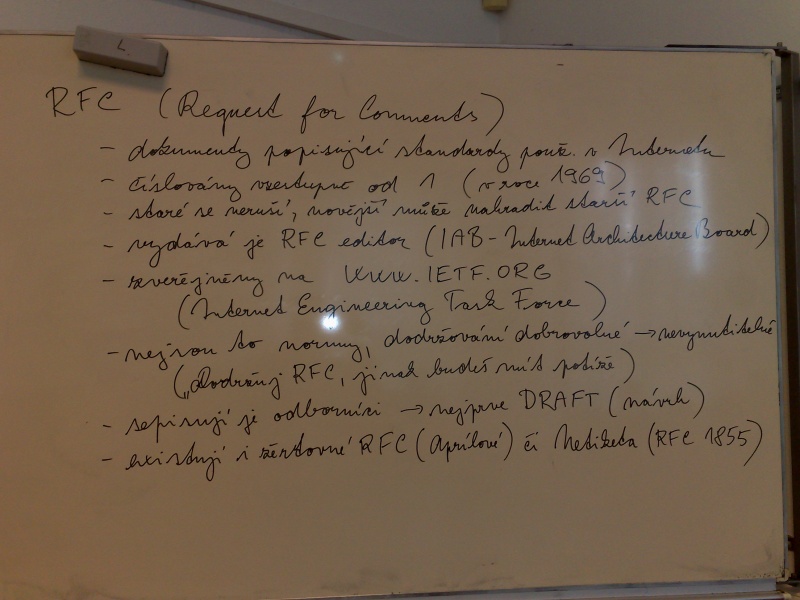 L.
RFC (Request for Comments)
- dokumenty popisující standardy použ. v Internetu
- číslovány vzestupně od 1 (v roce 1969)
- staré se neruší, novější může nahradit starší RFC
- vydává je RFC editor (IAB - Internet Architecture Board)
- zveřejněny na WWW.IETF.ORG
(Internet Engineering Task Force)
- nejsou to normy, dodržování dobrovolné → nevynutitelné
(„Dodržuj RFC, jinak budeš mít potíže)
- sepisují je odborníci → nejprve DRAFT (návrh)
- existují i žertovné RFC (Aprílové) či Netiketa (RFC 1855)